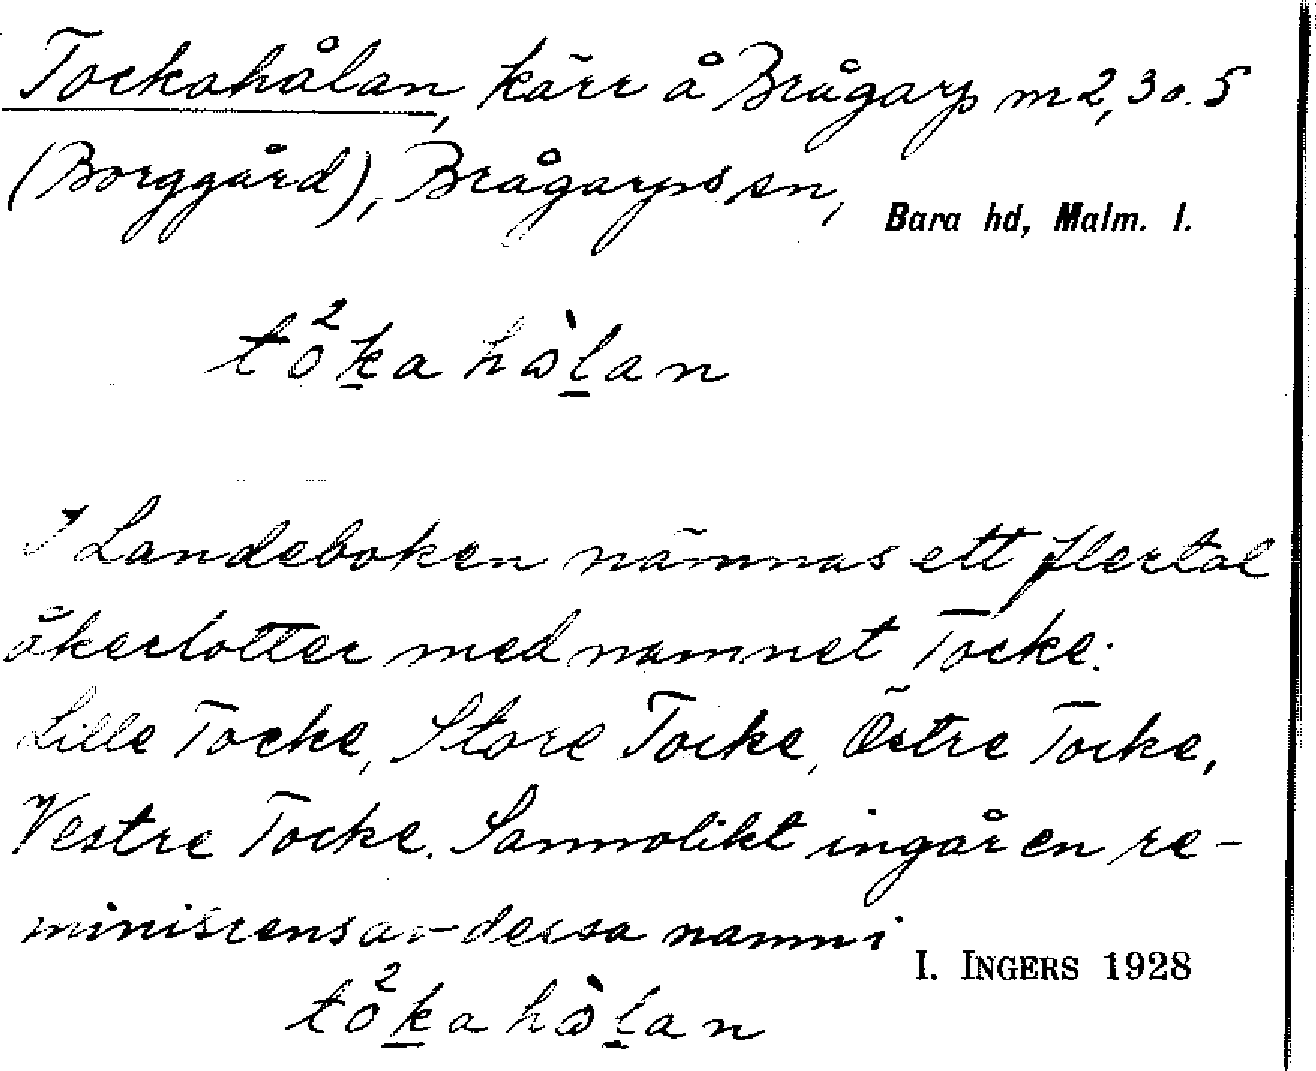 Tockahålan, kärr å Brågarp m 2, 3 o. 5
(Borggård), Brågarps sn, Bara hd, Malm. l.
to²ka hòlan
I Landeboken nämnas ett flertal
åkerlotter med namnet Tocke:
Lille Tocke, Store Tocke, Östre Tocke,
Vestre Tocke. Sannolikt ingår en re-
miniscens av dessa namn i
I. INGERS 1928
to²ka hòlan